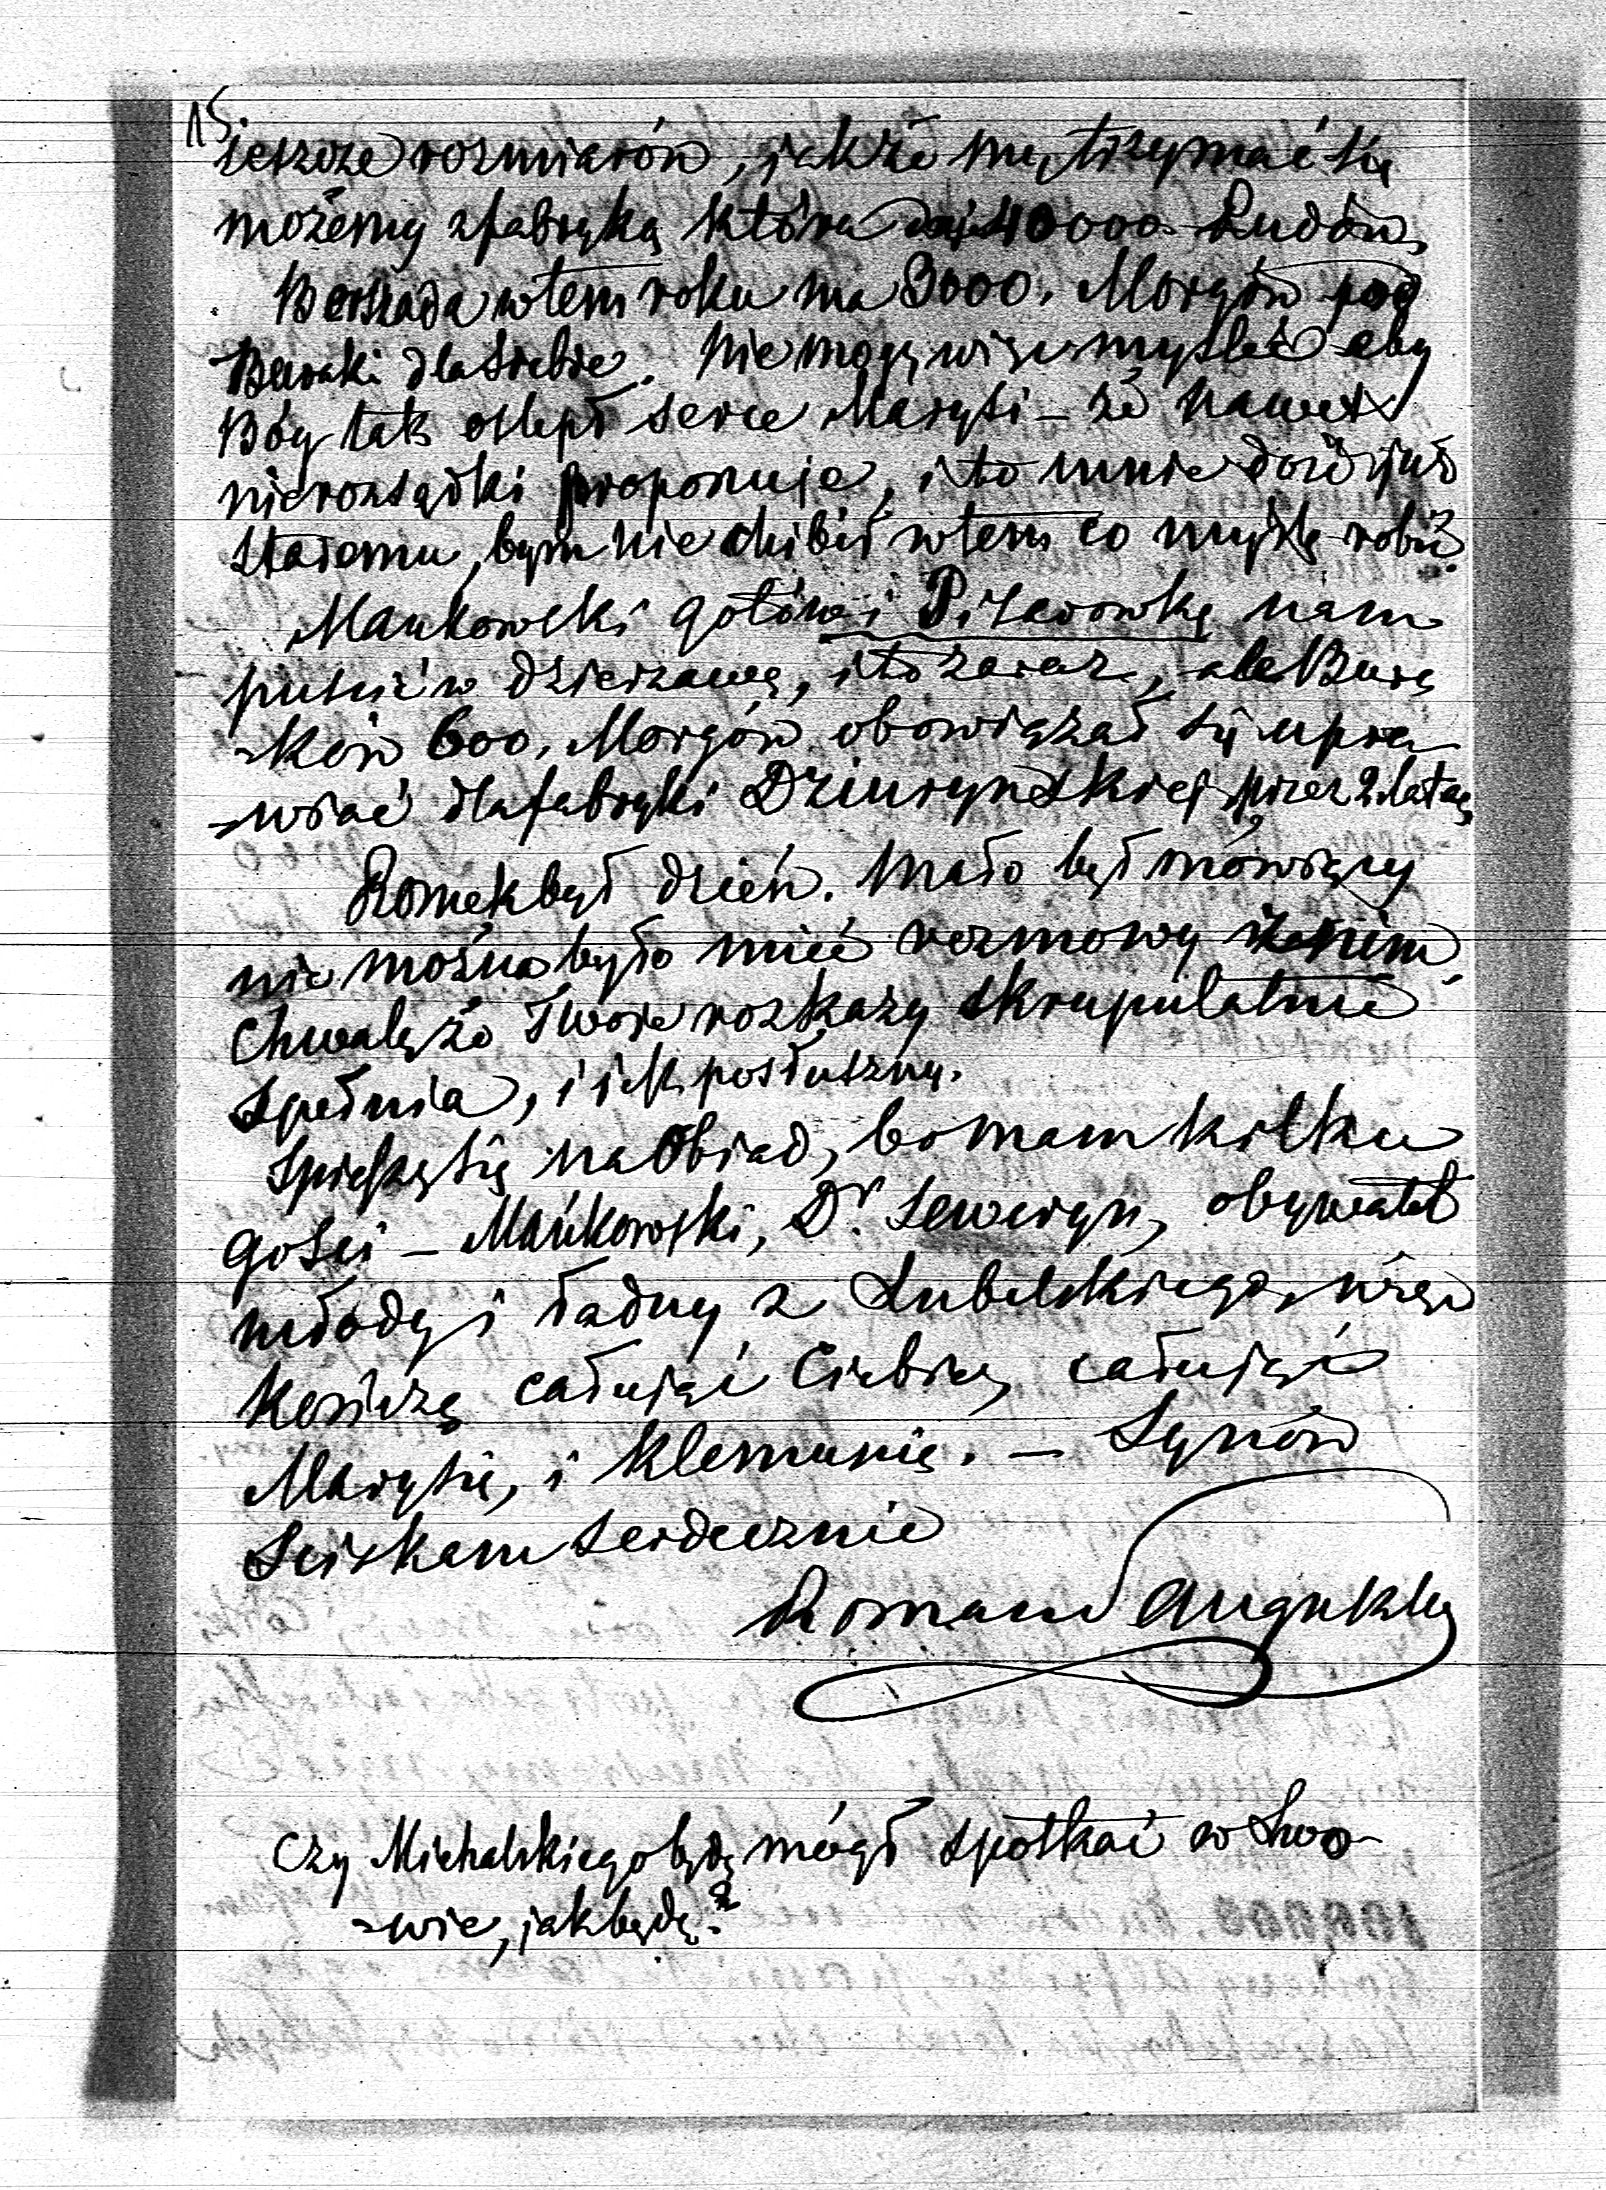 15.
jeszcze rozmiarów, jakże my trzymać się
możemy z fabryką która 40000 Pudów,
Berszada w tem roku ma 3000. Morgów pod
Buraki dla siebie. Nie mogę więc myśleć aby
Bóg tak oslepił serce Marysi – że nawet
nierozsądki proponuje, i to mnie dość już
staremu, bym nie chibił w tem co myślę robić.
Mańkowski gotów i Pisarowkę nam
puścić w dzierzawę, i to zaraz, ale Bura
-ków 600. Morgów obowiązał się upra
-wiać dla fabryki Dziuryńskiej przez 2 lata,
Romek był dzień. Mało był mówiący
nie można było mieć rozmowy z nim
Chwalę że Twoje rozkazy skrupulatnie
spełnia, i jest posłuszny.
Spieszę się na Obiad, bo mam kilku
gości – Mańkowski, Dr. Seweryn, obywatel
młody i ładny z Lubelskiego, więc
kończę całując Ciebie, całując
Marysię, i Klemunię. – Synów
Sciskam serdecznie
Roman Sanguszko
Czy Michalskiego będę mógł spotkać w Lwo-
-wie, jak będę?